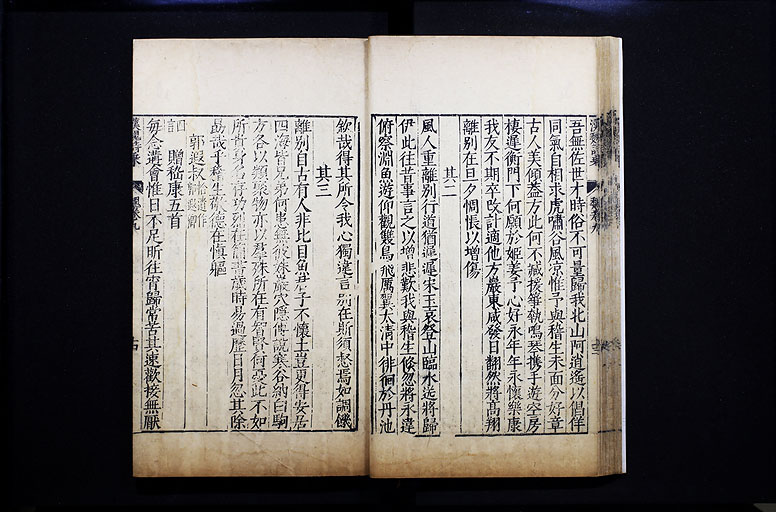 吾無佐世才時俗不可量歸我北山阿逍遙以倡佯
同氣自相求虎嘯谷風凉惟予與嵇生未面分好章
古人美傾蓋方此何不臧援箏執鳴琴携手遊空房
棲遲衡門下何願於姬姜予心好永年年永懷樂康
我友不期卒改計適他方嚴東咸發日翻然將高翔
離别在旦夕惆悵以增傷
其二
風人重離别行道猶遲遲宋玉哀登山臨水送將歸
伊此往昔事言之以增悲歎我與嵇生倏忽將永違
俯察淵魚遊仰觀雙鳥飛厲翼太清中徘徊於丹池
欽哉得其所令我心獨違言别在斯須惄焉如調饑
其三
離别自古有人非比目魚君子不懷土豈更得安居
四海皆兄弟何患無彼姝巖穴隱傅說寒谷納白駒
方各以類聚物亦以羣殊所在有智賢何憂此不如
所貴身名存功烈在簡書歲時易過歷日月忽其除
勗哉乎嵇生敬德在慎軀
郭遐叔
贈嵇康五首
每念遘會惟日不足昕往宵歸常苦其速歡接無厭